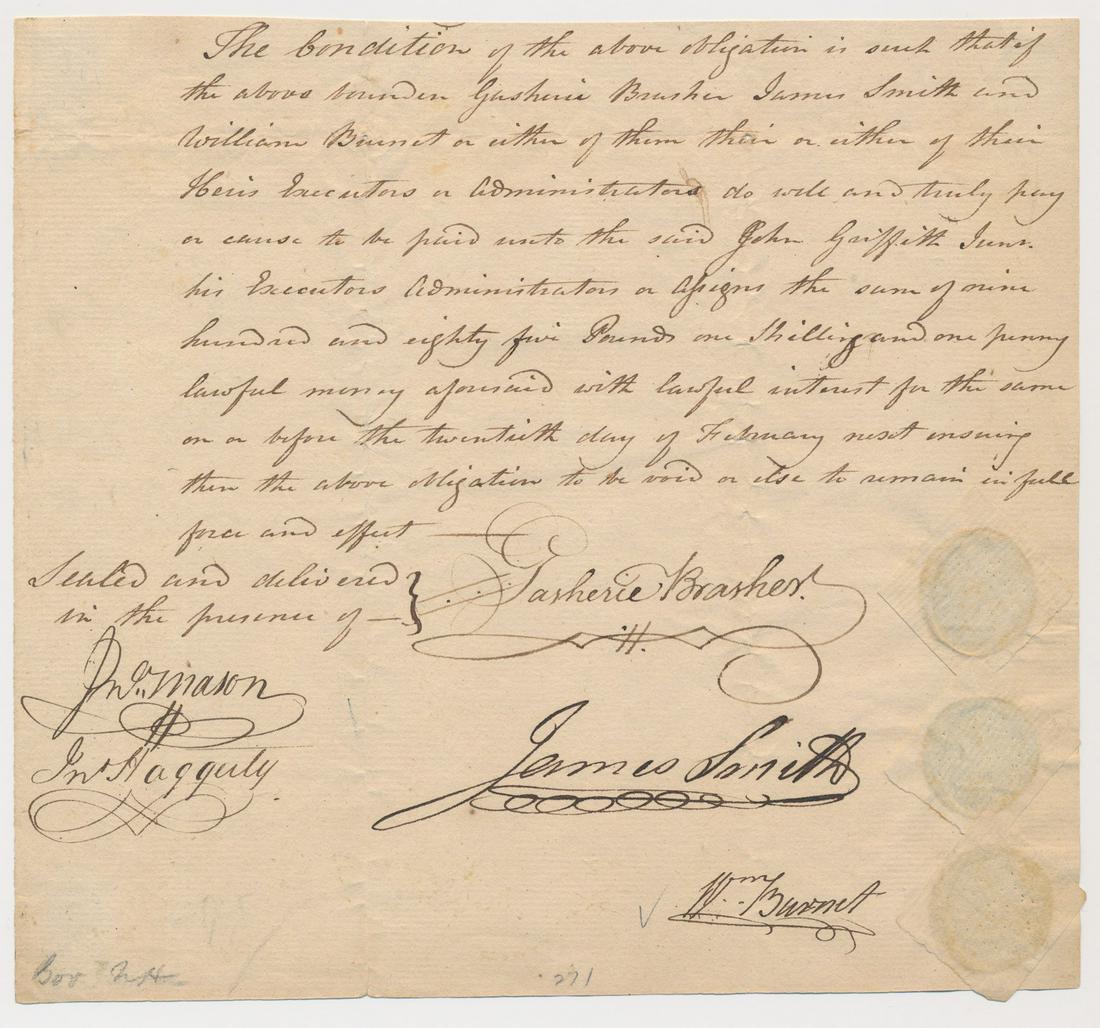 The Condition of the above obligation is such that if
the above bounden Gasherie Brasher James Smith and
William Burnet or either of them their or either of their
Heirs Executors or Administrators do well and truly pay
or cause to be paid unto the said John Griffith Junr.
his Executors Administrators or Assigns the sum of nine
hundred and eighty five Pounds one Shilling and one penny
lawful money aforesaid with lawful interest for the same
on or before the twentieth day of February next ensuing
then the above obligation to be void or else to remain in full
force and effect —
Sealed and delivered
in the presence of —
Gasherie Brasher.
Jno. Mason
Jno Haggerty
James Smith
Wm Burnet
271